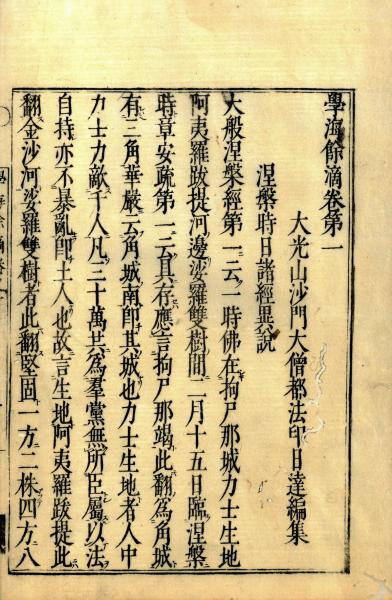 學海餘滴卷第一
大光山沙門大僧都法印日達編集
涅槃時日諸經異說
大般涅槃經第一云一時佛在拘尸那城力士生地
阿夷羅跋提河邊娑羅雙樹間二月十五日臨涅槃
時章安疏第一云具存應言拘尸那竭此翻爲角城
有三角華嚴云角城南卽其城也力士生地者人中
力士力敵千人凡三十萬共爲羣黨無所臣屬以法
自持亦不暴亂卽土人也故言生地阿夷羅跋提此
翻金沙河娑羅雙樹者此翻堅固一方二株四方八